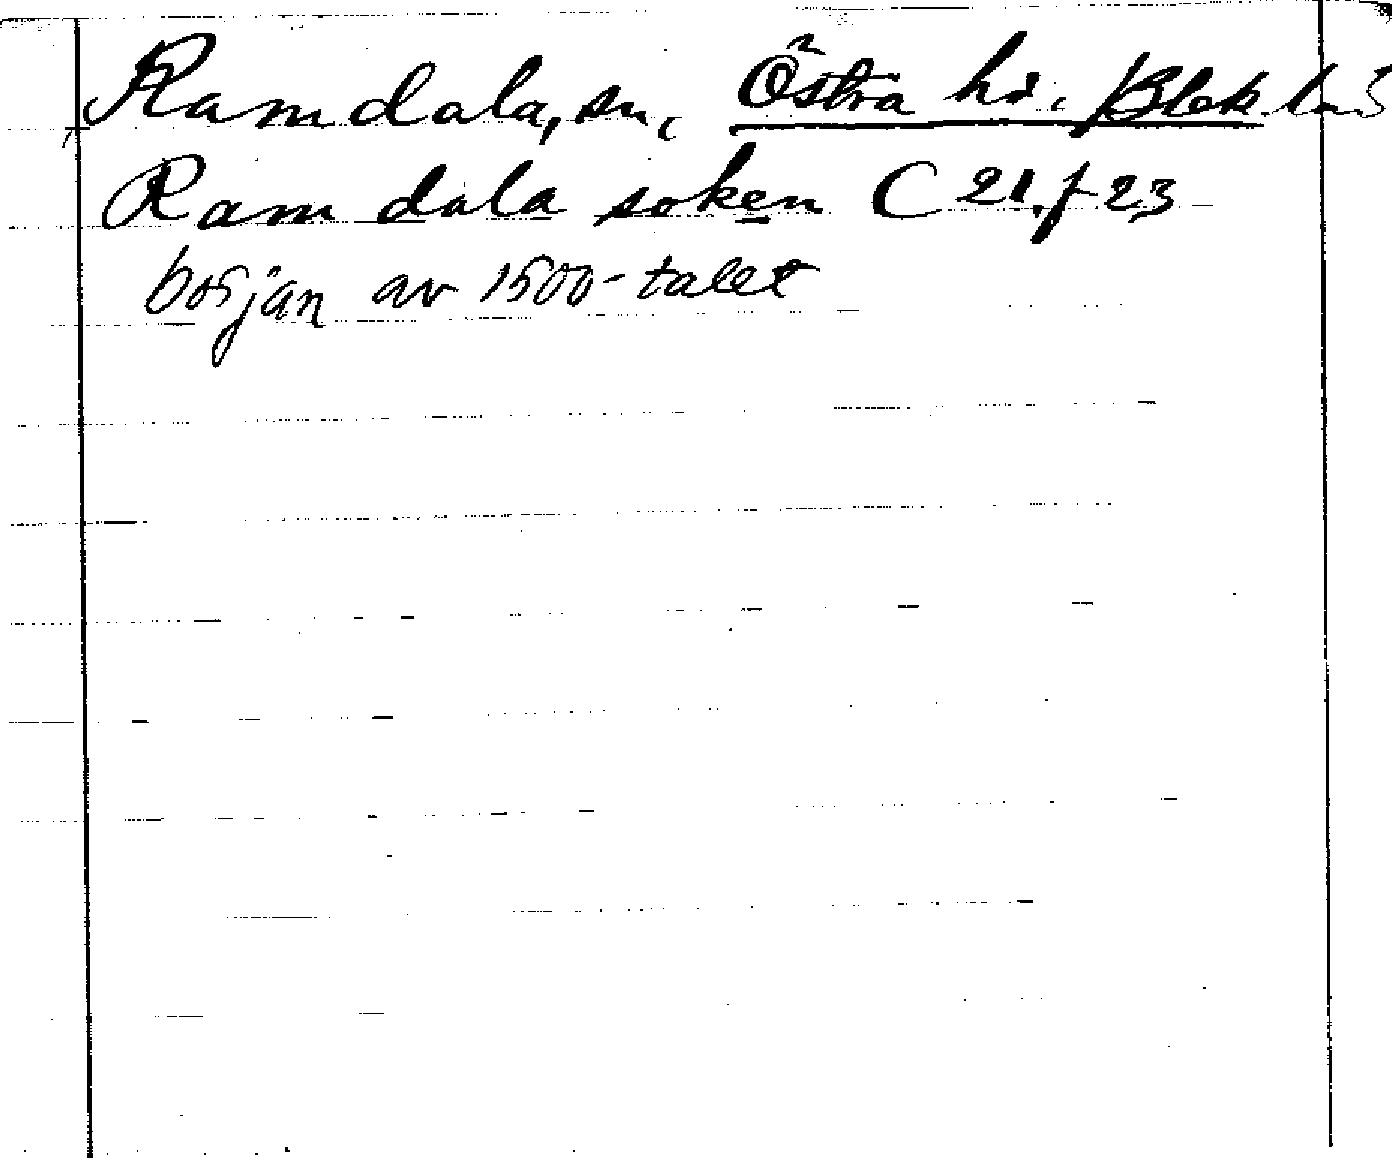 Ramdala, sn, Östra hd. Blek. län
Ramdala soken C 21. f 23
början av 1500-talet